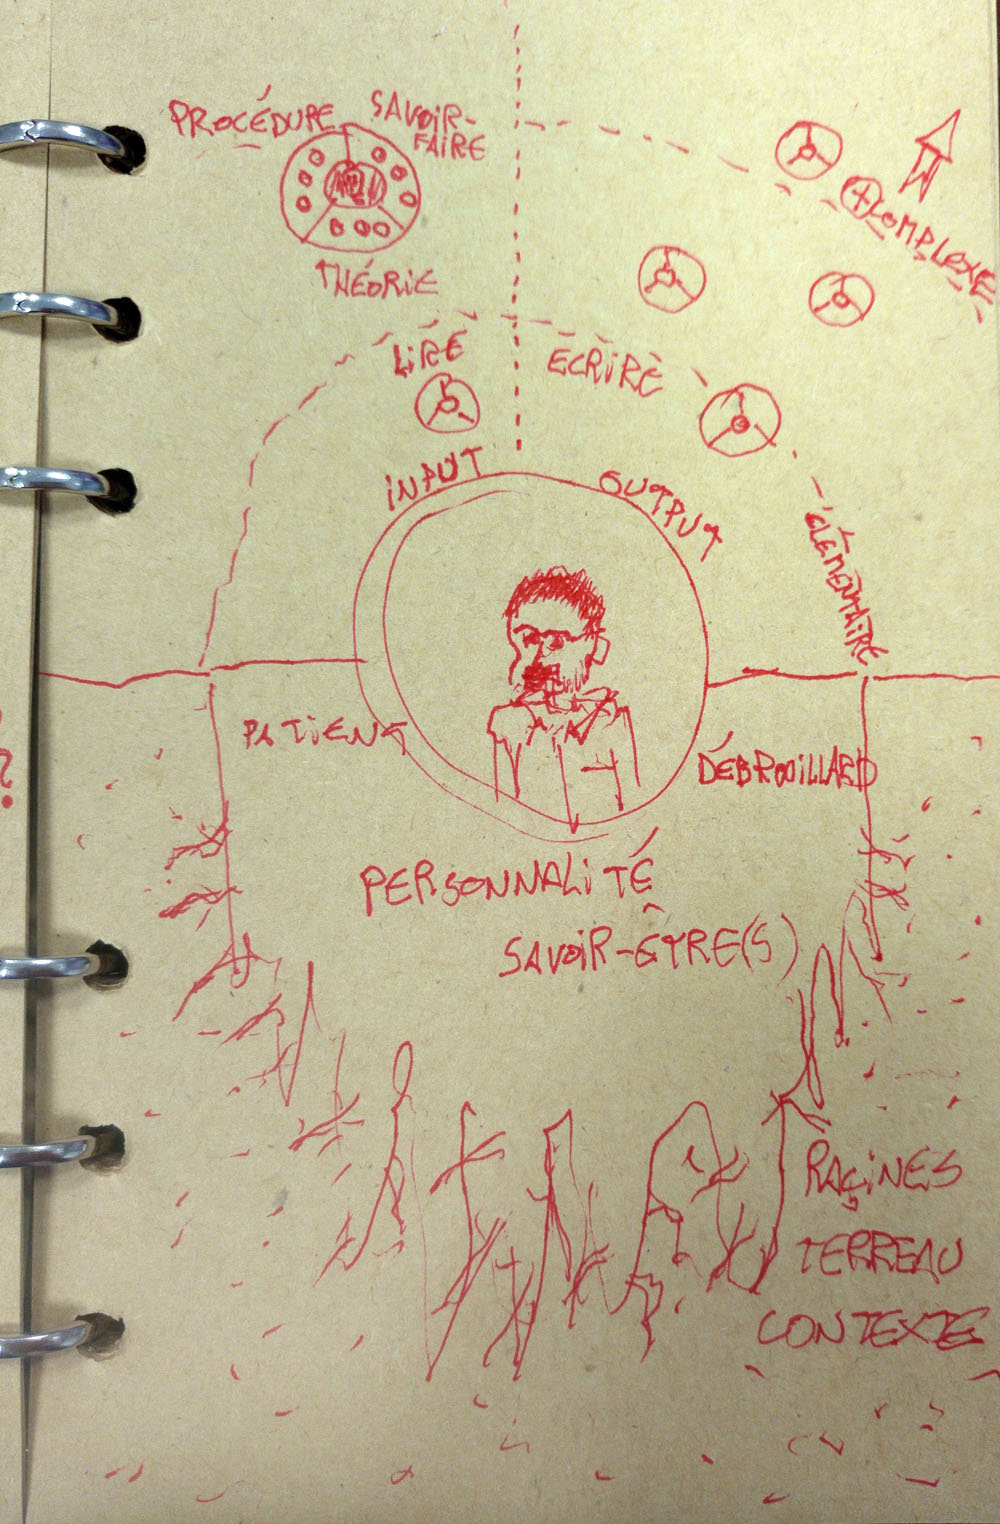 PROCÉDURE
SAVOIR-
FAIRE
THÉORIE
+ COMPLEXE
LIRE
ECRIRE
INPUT
OUTPUT
ÉLÉMENTAIRE
PATIENT
DÉBROUILLARD
?
PERSONNALITÉ
SAVOIR-ÊTRE(S)
RAÇINES
TERREAU
CONTEXTE